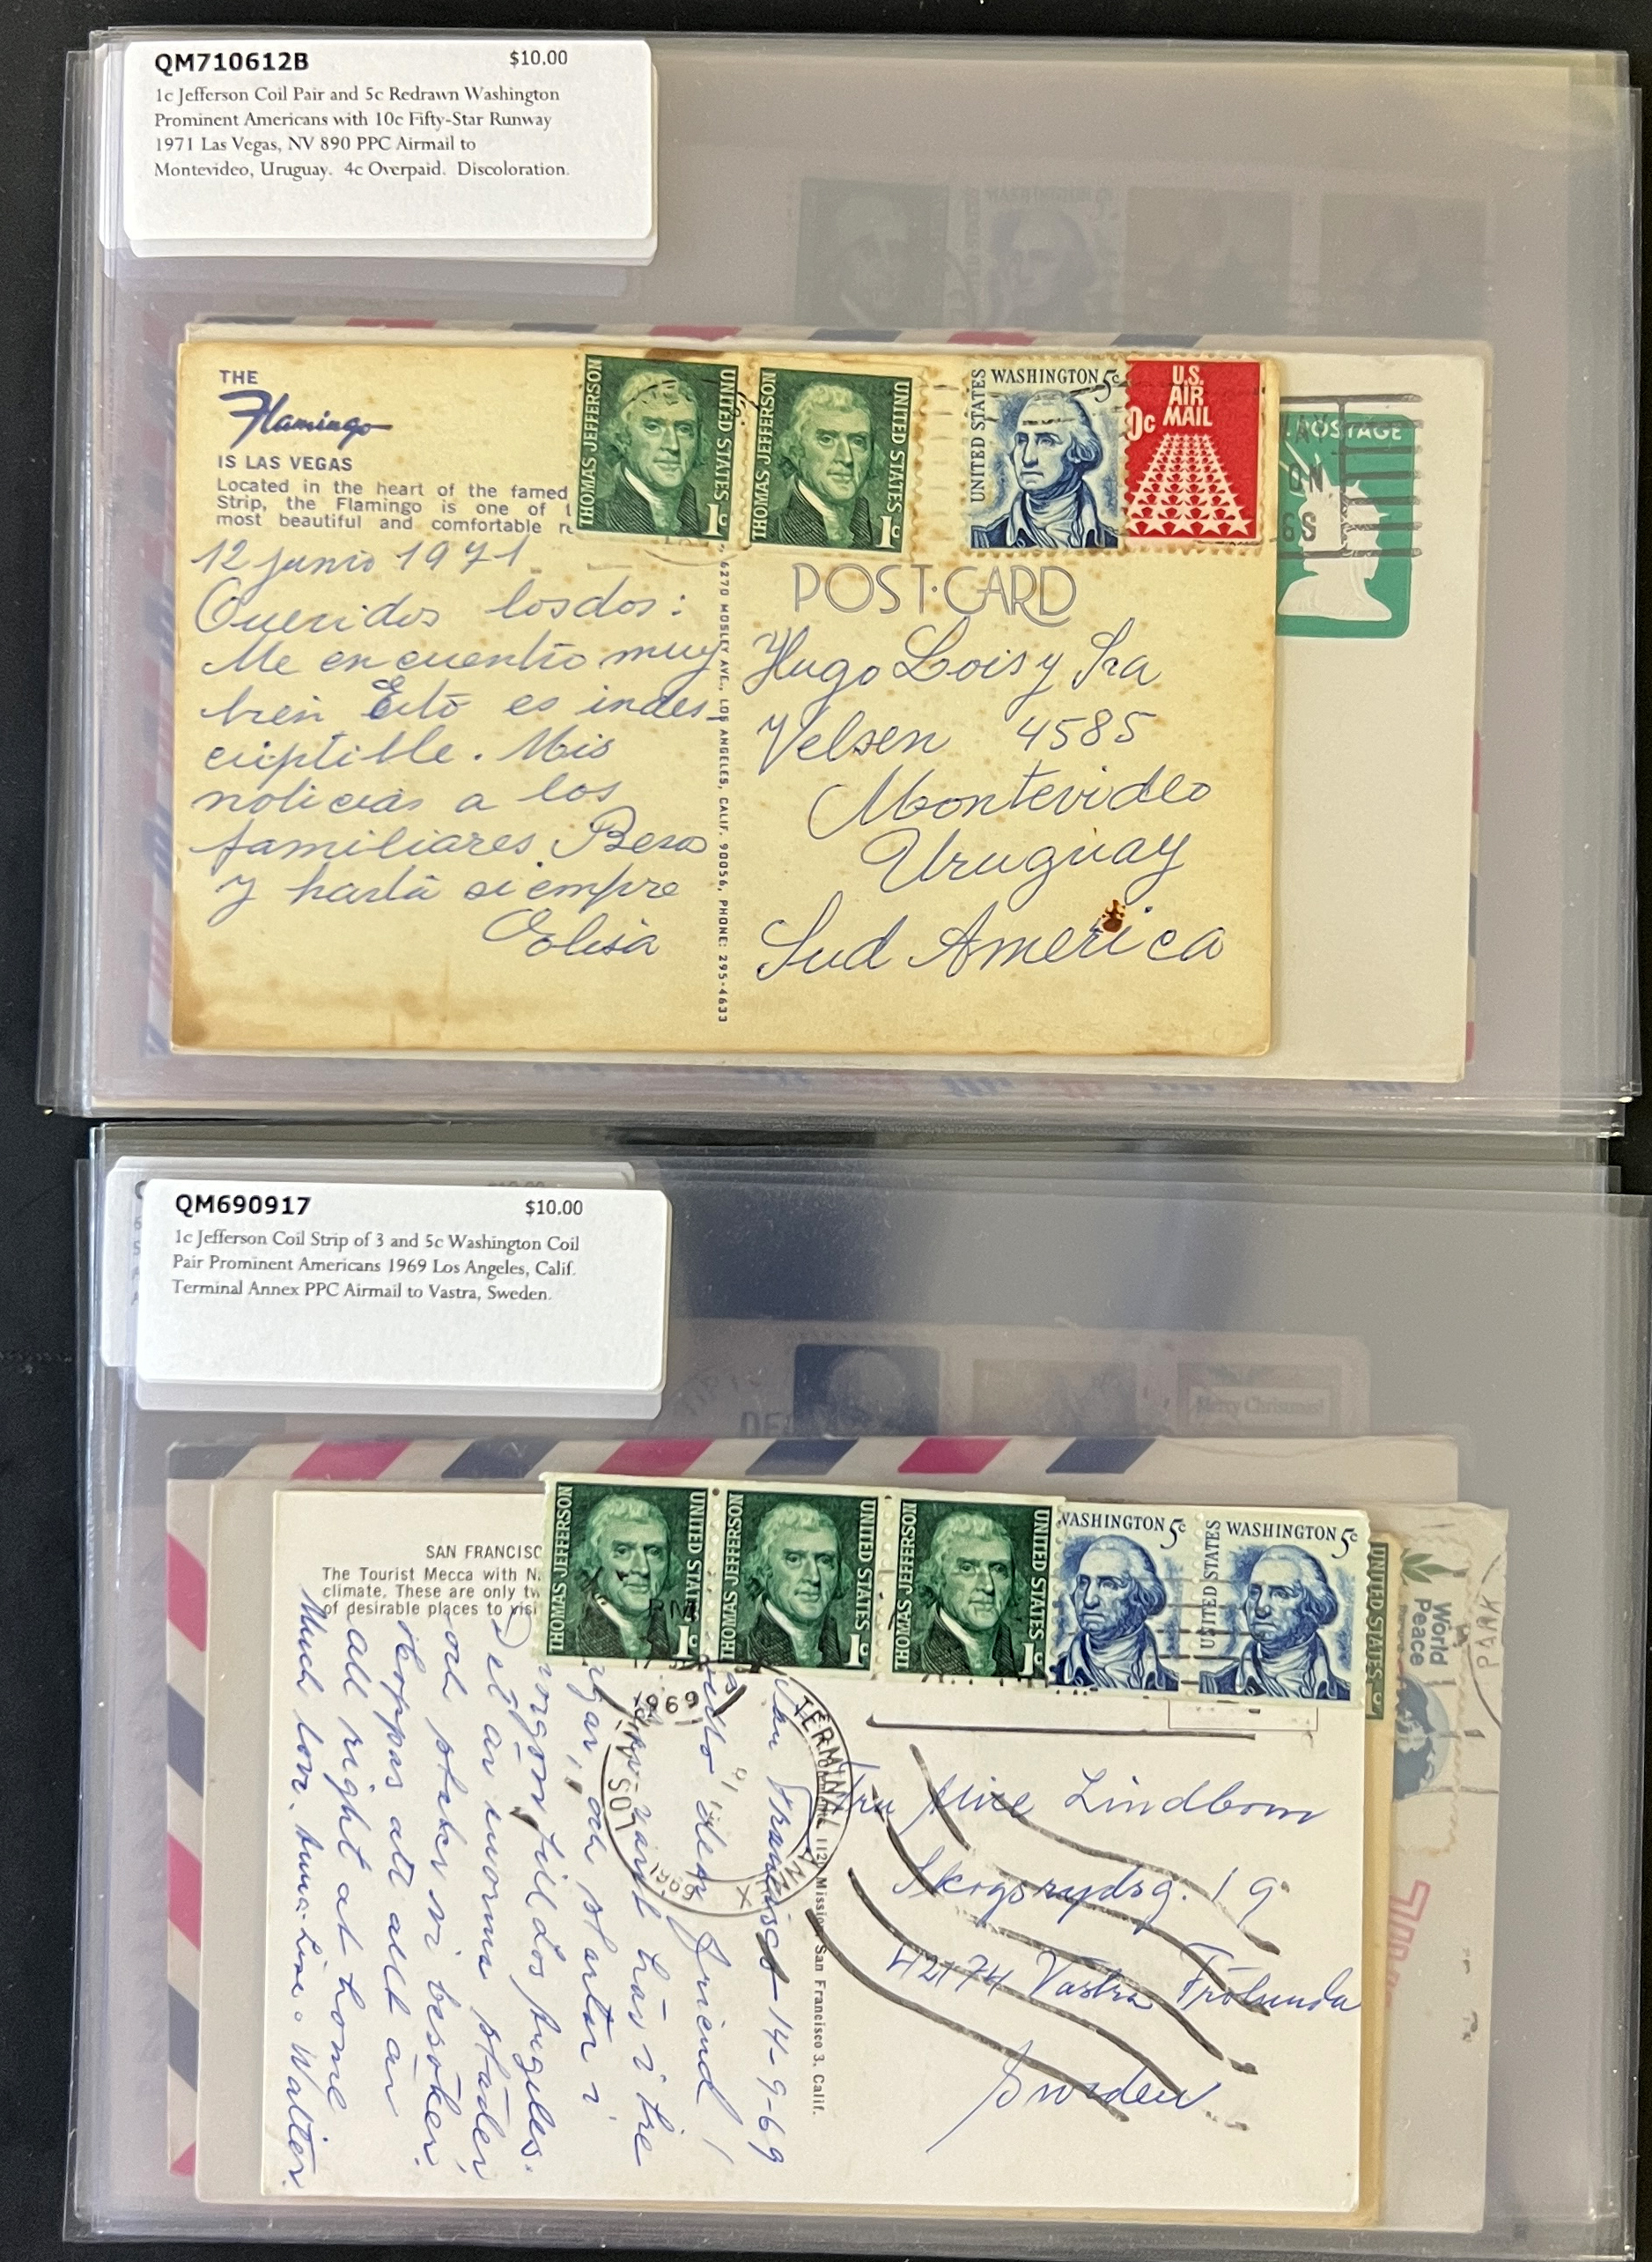 QM710612B $10.00
1c Jefferson Coil Pair and 5c Redrawn Washington
Prominent Americans with 10c Fifty-Star Runway
1971 Las Vegas, NV 890 PPC Airmail to
Montevideo, Uruguay. 4c Overpaid. Discoloration.
THE
Flamingo
IS LAS VEGAS
Located in the heart of the famed
Strip, the Flamingo is one of
most beautiful and comfortable
THOMAS JEFFERSON UNITED STATES 1c
THOMAS JEFFERSON UNITED STATES 1c
UNITED STATES WASHINGTON 5c
U.S.
AIR
MAIL
0c
POSTAGE
POST·CARD
12 junio 1971.
Queridos los dos:
Me encuentro muy
bien Esto es indes-
criptible. Mis
noticias a los
familiares. Beso
y hasta siempre
Elisa
6270 MOSLEY AVE., LOS ANGELES, CALIF. 90056, PHONE: 295-4633
Hugo Lois y Sra
Velsen 4585
Montevideo
Uruguay
Sud America
QM690917 $10.00
1c Jefferson Coil Strip of 3 and 5c Washington Coil
Pair Prominent Americans 1969 Los Angeles, Calif.
Terminal Annex PPC Airmail to Vastra, Sweden.
Merry Christmas!
SAN FRANCISC
The Tourist Mecca with N.
climate. These are only tw
of desirable places to visi
THOMAS JEFFERSON UNITED STATES 1c
THOMAS JEFFERSON UNITED STATES 1c
THOMAS JEFFERSON UNITED STATES 1c
WASHINGTON 5c
UNITED STATES WASHINGTON 5c
UNITED STATES
World
Peace
PARK
PM
1969
LOS
TERMINAL ANNEX
San Francisco 14-9-69
Friend!
har i tre
och startar i
till Los Angeles.
Det är enorma städer
och platser vi besöker.
Hoppas att allt är
all right at home
Much love. Anna-Lisa o Walter.
Mission, San Francisco 3, Calif.
Fru Alice Lindbom
Skogsrydsg. 19
42174 Västra Frölunda
Sweden